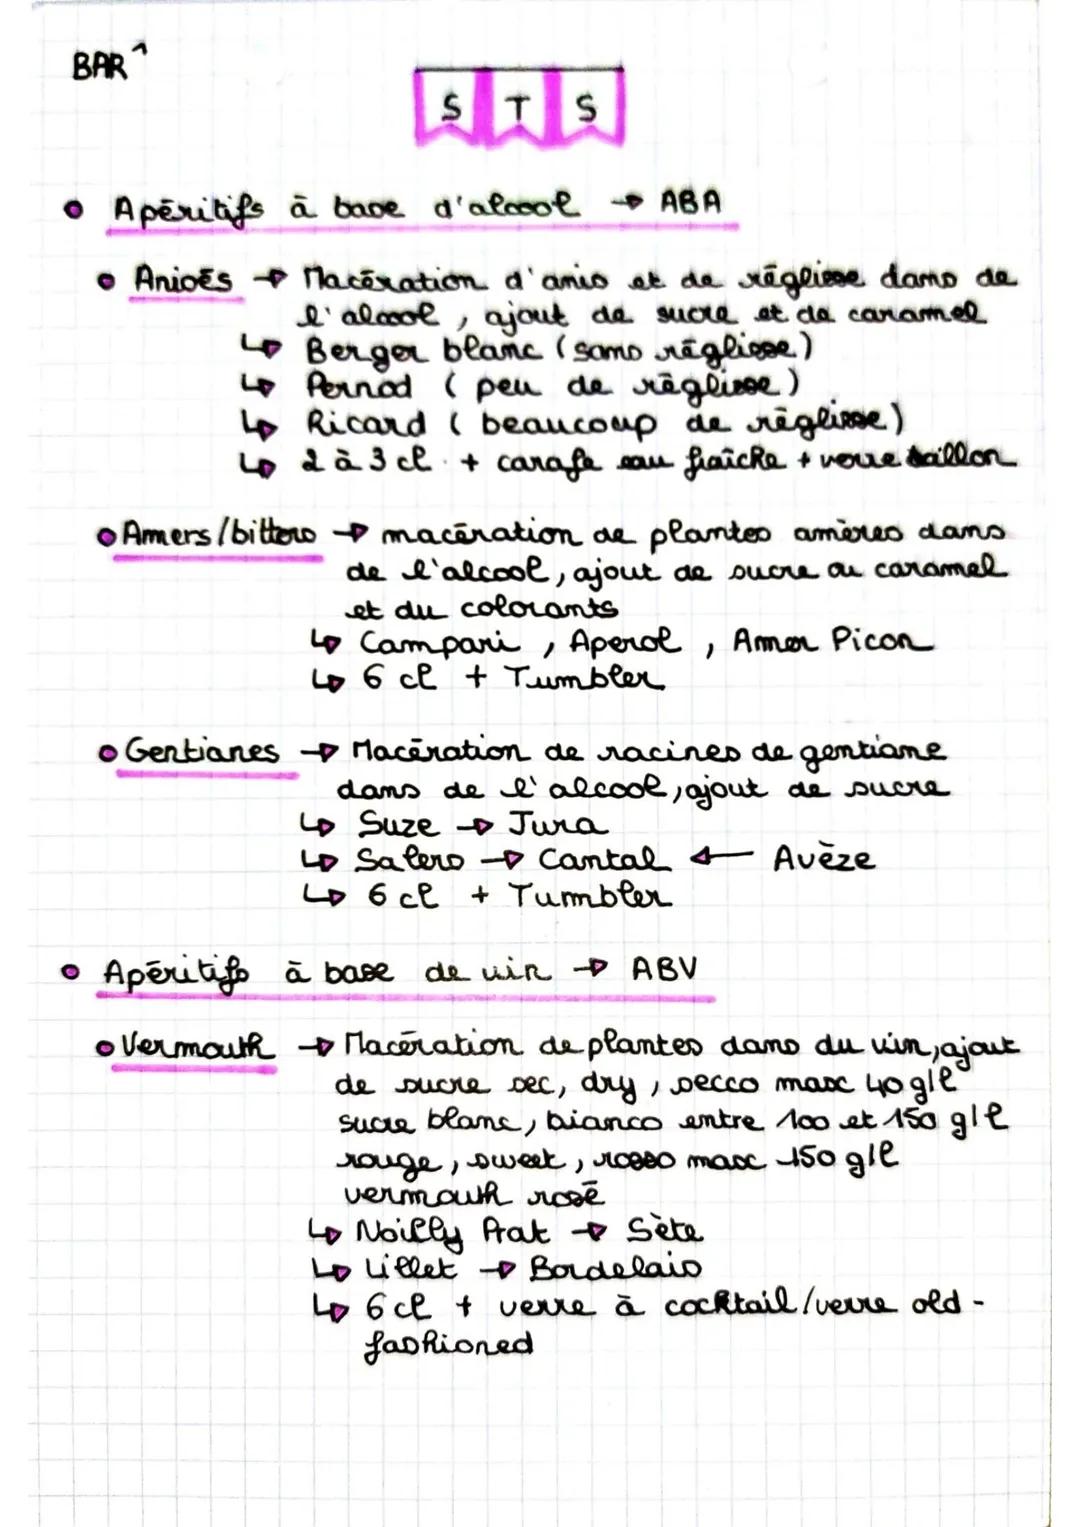 BAR 1
S T S
• Apéritifs à base d'alcool → ABA
• Anisés → Macération d'anis et de réglisse dans de
l'alcool, ajout de sucre et de caramel
↳ Berger blanc (sans réglisse)
↳ Pernod (peu de réglisse)
↳ Ricard (beaucoup de réglisse)
↳ 2 à 3 cl + carafe eau fraîche + verre ballon
• Amers/bitters → macération de plantes amères dans
de l'alcool, ajout de sucre ou caramel
et du colorants
↳ Campari, Aperol, Amer Picon
↳ 6 cl + Tumbler
• Gentianes → Macération de racines de gentiane
dans de l'alcool, ajout de sucre
↳ Suze → Jura
↳ Salers → Cantal ← Avèze
↳ 6 cl + Tumbler
• Apéritifs à base de vin → ABV
• Vermouth → Macération de plantes dans du vin, ajout
de sucre sec, dry, secco max 40 g/l
sucre blanc, bianco entre 100 et 150 g/l
rouge, sweet, rosso max 150 g/l
vermouth rosé
↳ Noilly Prat → Sète
↳ Lillet → Bordelais
↳ 6 cl + verre à cocktail/verre old-
fashioned